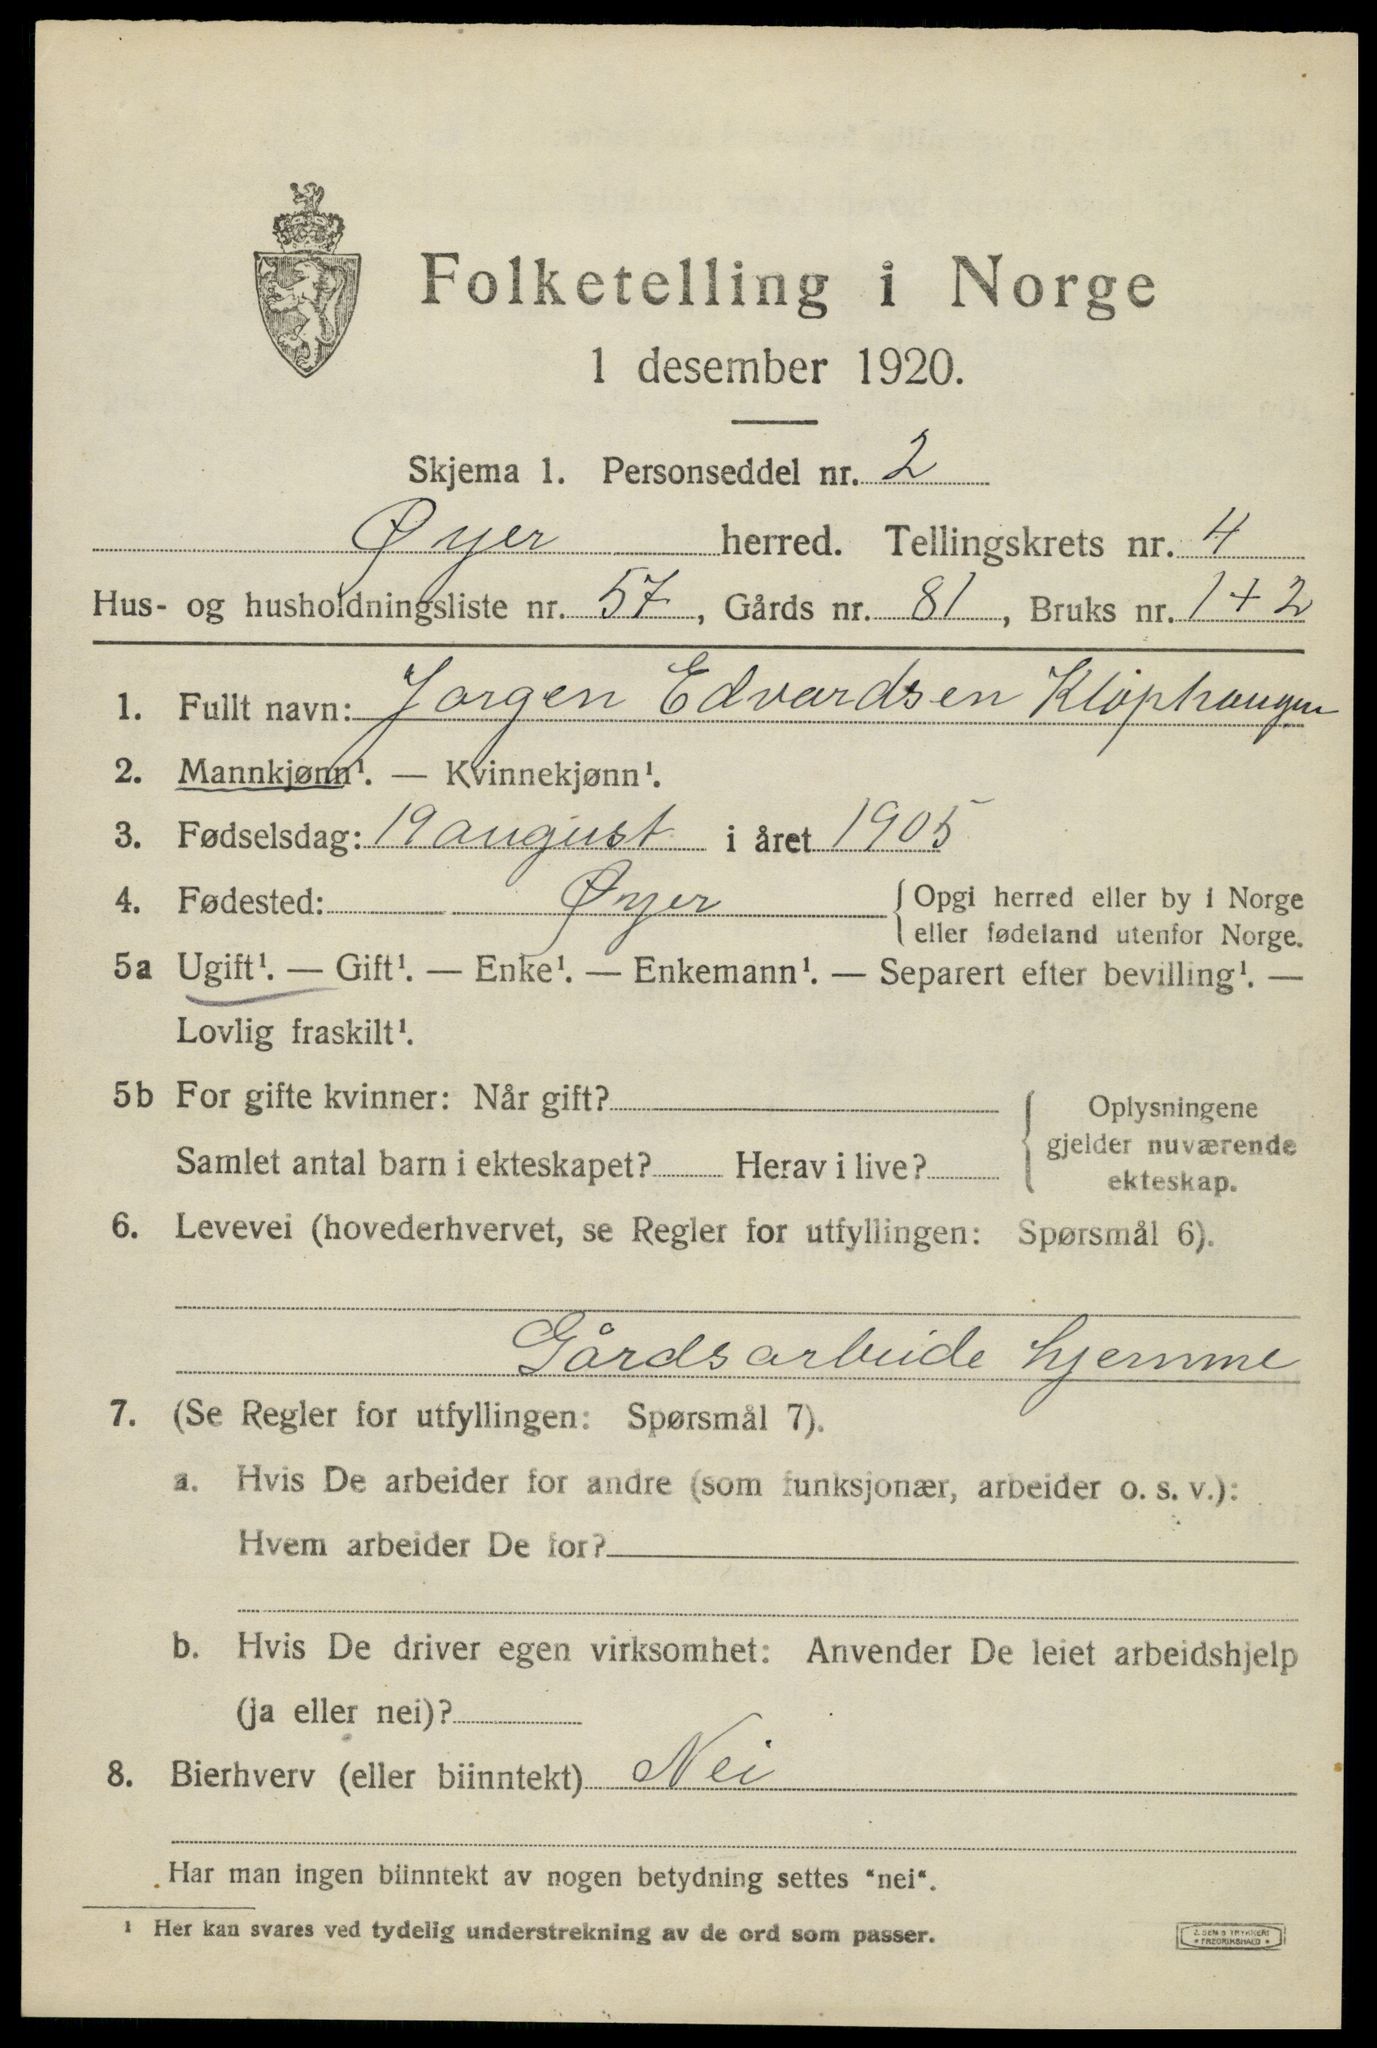 Folketelling i Norge
1 desember 1920.
Skjema 1. Personseddel nr. 2
Øyer herred. Tellingskrets nr. 4
Hus- og husholdningsliste nr. 57, Gårds nr. 81, Bruks nr. 1 + 2
1. Fullt navn: Jørgen Edvardsen Kløphaugen
2. Mannkjønn¹. — Kvinnekjønn¹.
3. Fødselsdag: 19 august i året 1905
4. Fødested: Øyer { Opgi herred eller by i Norge
eller fødeland utenfor Norge.
5a Ugift¹. — Gift¹. — Enke¹. — Enkemann¹. — Separert efter bevilling¹. —
Lovlig fraskilt¹.
5b For gifte kvinner: Når gift? { Oplysningene
gjelder nuværende
Samlet antal barn i ekteskapet? Herav i live?
ekteskap.
6. Levevei (hovederhvervet, se Regler for utfyllingen: Spørsmål 6).
Gårdsarbeide hjemme
7. (Se Regler for utfyllingen: Spørsmål 7).
a. Hvis De arbeider for andre (som funksjonær, arbeider o. s. v.):
Hvem arbeider De for?
b. Hvis De driver egen virksomhet: Anvender De leiet arbeidshjelp
(ja eller nei)?
8. Bierhverv (eller biinntekt) Nei
Har man ingen biinntekt av nogen betydning settes "nei".
¹ Her kan svares ved tydelig understrekning av de ord som passer.